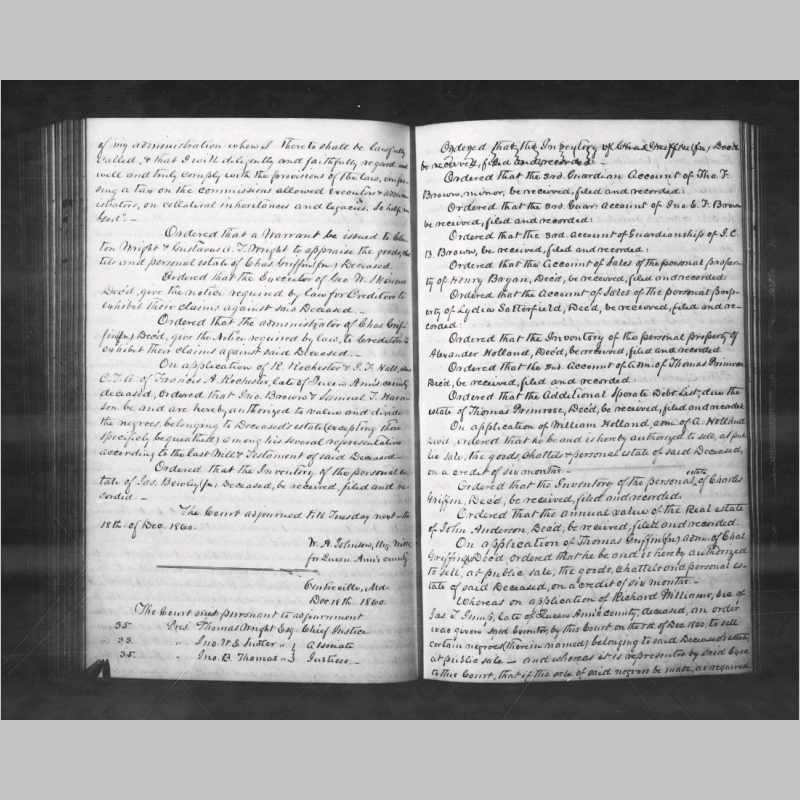 of my administration when I thereto shall be lawfully
called, & that I will diligently and faithfully regard and
well and truly comply with the provisions of the law, impo-
sing a tax on the commissions allowed executors & admin-
istrators, on collateral inheritances and legacies, So help me
God". —
Ordered that a Warrant be issued to
ton Wright & Gustavus T. Wright to appraise the goods, chat-
tels and personal estate of Chas Griffin (fn) Deceased.
Ordered that the Executor of Geo W.
Dec'd, give the notice required by law for Creditors to
exhibit their claims against said Deceased. —
Ordered that the administrator of Chas Grif-
fin (fn) Dec'd, give the Notice required by law, to Creditors to
exhibit their claims against said Deceased. —
On application of R. Rochester & J. F. Hall,
C. T. A. of Francis A. Rochester, late of Queen Ann's county
deceased, Ordered that Jno. Brown & Samuel T.
son be and are hereby authorized to value and divide
the negroes, belonging to Deceased's estate (excepting those
specificly bequeathed) among his several representatives
according to the last Will & Testament of said Deceased —
Ordered that the Inventory of the personal es-
tate of Jas. Bewley (fn) Deceased, be received, filed and re-
corded —
The Court adjourned till Tuesday next the
18th of Dec. 1860.
W. A. Johnson, Reg. Wills
for Queen Ann's county
Centreville, Md.
Dec 18th 1860.
The Court met pursuant to adjournment
35. Pres. Thomas Wright Esq. Chief Justice
" 33. " Jno. W. E. Sudler " } Associate
35. " Jno. B. Thomas " } Justices. —
Ordered that the Inventory of Chas Griffin (fn), Dec'd
be received, filed and recorded —
Ordered that the 3rd Guardian Account of Jno. F.
Brown, minor, be received, filed and recorded:
Ordered that the 3rd Guar: Account of Jno E. F. Brown
be received, filed and recorded:
Ordered that the 3rd Account of Guardianship of J. C.
B. Brown, be received, filed and recorded:
Ordered that the Account of Sales of the personal proper-
ty of Henry Bryan, Dec'd, be received, filed and recorded
Ordered that the Account of Sales of the personal prop-
erty of Lydia Satterfield, Dec'd, be received, filed and re-
corded:
Ordered that the Inventory of the personal property of
Alexander Holland, Dec'd, be received, filed and recorded
Ordered that the Account of Adm: of Thomas Primrose
Dec'd, be received, filed and recorded
Ordered that the Additional Sperate Debt List, due the
estate of Thomas Primrose, Dec'd, be received, filed and recorded
On application of William Holland, adm: of A. Holland
Dec'd, ordered that he be and is hereby authorized to sell, at pub-
lic sale, the goods, chattels & personal estate of said Deceased,
on a credit of six months. —
Ordered that the Inventory of the personal estate of Charles
Griffin, Dec'd, be received, filed and recorded.
Ordered that the annual value of the Real estate
of John Anderson, Dec'd, be received, filed and recorded
On application of Thomas Griffin (fn) adm: of Chas
Griffin (fn) Dec'd, ordered that he be and is hereby authorized
to sell, at public sale, the goods, chattels and personal es-
tate of said Deceased, on a credit of six months. —
Whereas on application of Richard Williams, Exec of
Jas. T. late of Queen Ann's county, deceased, an order
was given said Executor, by this Court on the of Dec 1860, to sell
certain negroes (therein named) belonging to said Deceased's estate,
at public sale — and whereas it is represented by said Exec
to this Court, that if the sale of said negroes be made, as required